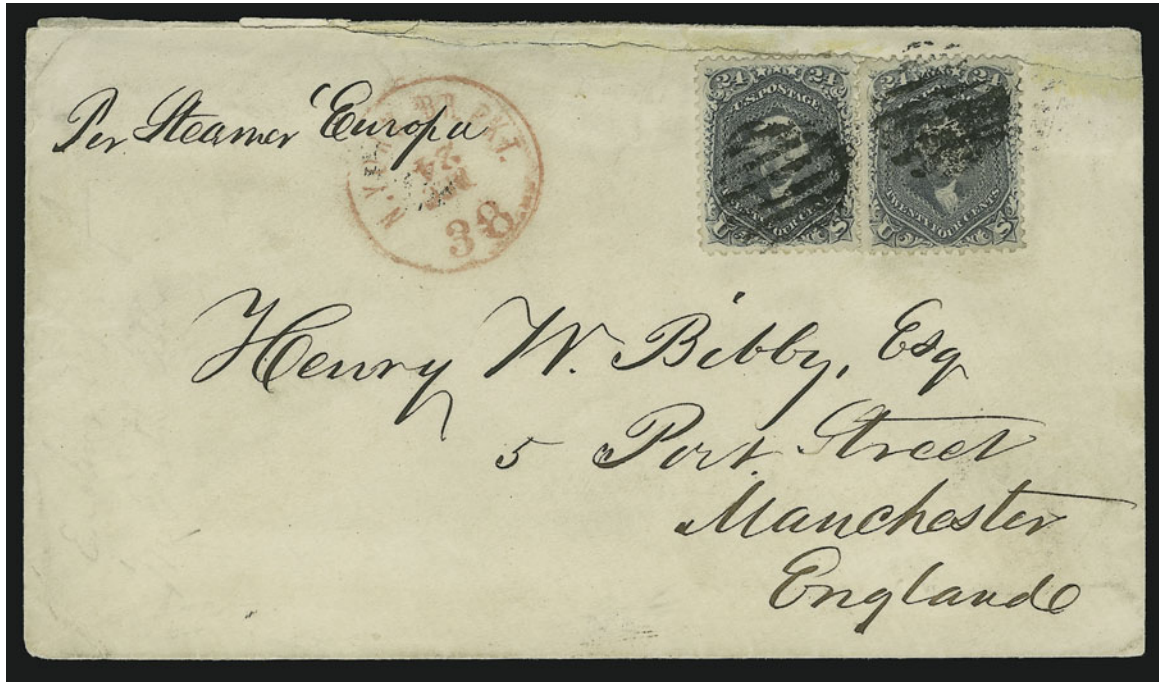 Per Steamer Europa
N. YORK BR. PKT.
24
38
24 24
U.S. POSTAGE
TWENTY FOUR CENTS
U S
24 24
TWENTY FOUR CENTS
U S
Henry W. Bibby, Esq
5 Port Street
Manchester
England